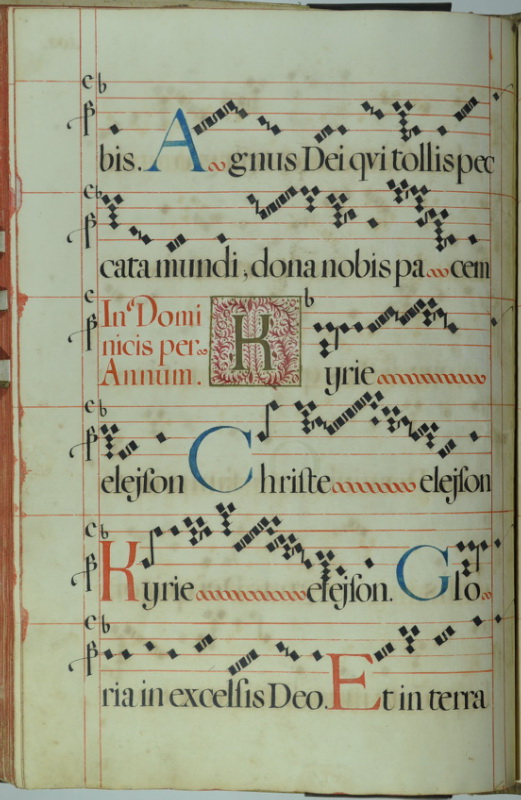 bis. Agnus Dei qvi tollis pec
cata mundi, dona nobis pa cem
In Domi
nicis per
Annum.
Kyrie
elejson Christe elejson
Kyrie elejson. Glo
ria in excelsis Deo. Et in terra